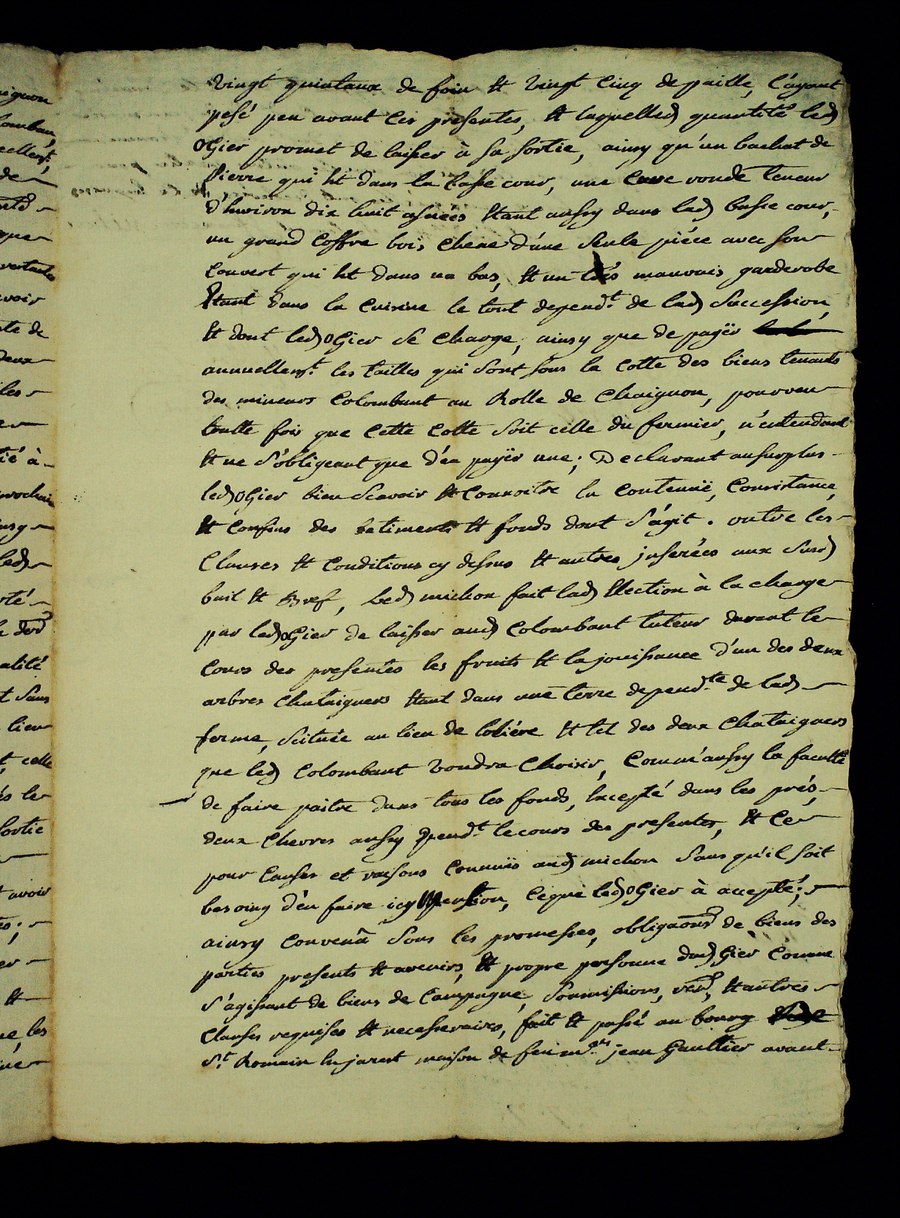 vingt quintaux de foin et vingt cinq de paille, l'ayant
pesé peu avant ces presentes, et laquelled quantité led
ogier promet de laisser à sa sortie, ainsy qu'un bachat de
pierre qui est dans la basse cour, une cuve ronde teneur
d'environ dix huit asnées etant aussy dans lad basse cour,
un grand coffre bois chene d'une seule piéce avec son
couvert qui est dans un bas, et un très mauvais garderobe
etant dans la cuisine le tout depend.t de lad succession,
et dont led ogier se charge, ainsy que de payër
annuellem.t les tailles qui sont sous la cotte des biens tenants
des mineurs Colombant au Rolle de Chaignon, pourveu
toutte fois que cette cotte soit celle du fermier, n'entendant
et ne s'obligeant que d'en payër une; Declarant au surplus
led ogier bien scavoir et connoitre la contenuë, consistance,
et confins des batiments et fonds dont s'agit. outre les
clauses et conditions cy dessus et autres inserées aux susd
bail et Bref, led michon fait lad election à la charge
par led ogier de laisser aud Colombant tuteur durant le
cours des presentes les fruits et la jouissance d'un des deux
arbres chataigners etant dans une terre depend.te de lad
ferme, scituée au lieu de lobiére et tel des deux chataigners
que led Colombant voudra choisir, comm'aussy la faculté
de faire paitre dans tous les fonds, excepté dans les prés,
deux chevres aussy pend.t le cours des presentes, et ce
pour causes et raisons connuës aud michon sans qu'il soit
besoing d'en faire icy mention, ce que led ogier à accepté;
ainsy convenû sous les promesses, obligaons de biens des
parties presents et avenirs, et propre personne dud ogier comme
s'agissant de biens de campagne, soumissions, ren., et autres
clauses requises et necessaires, fait et passé au bourg
S.t Romain en jarest maison de feu m. jean Gaultier avant